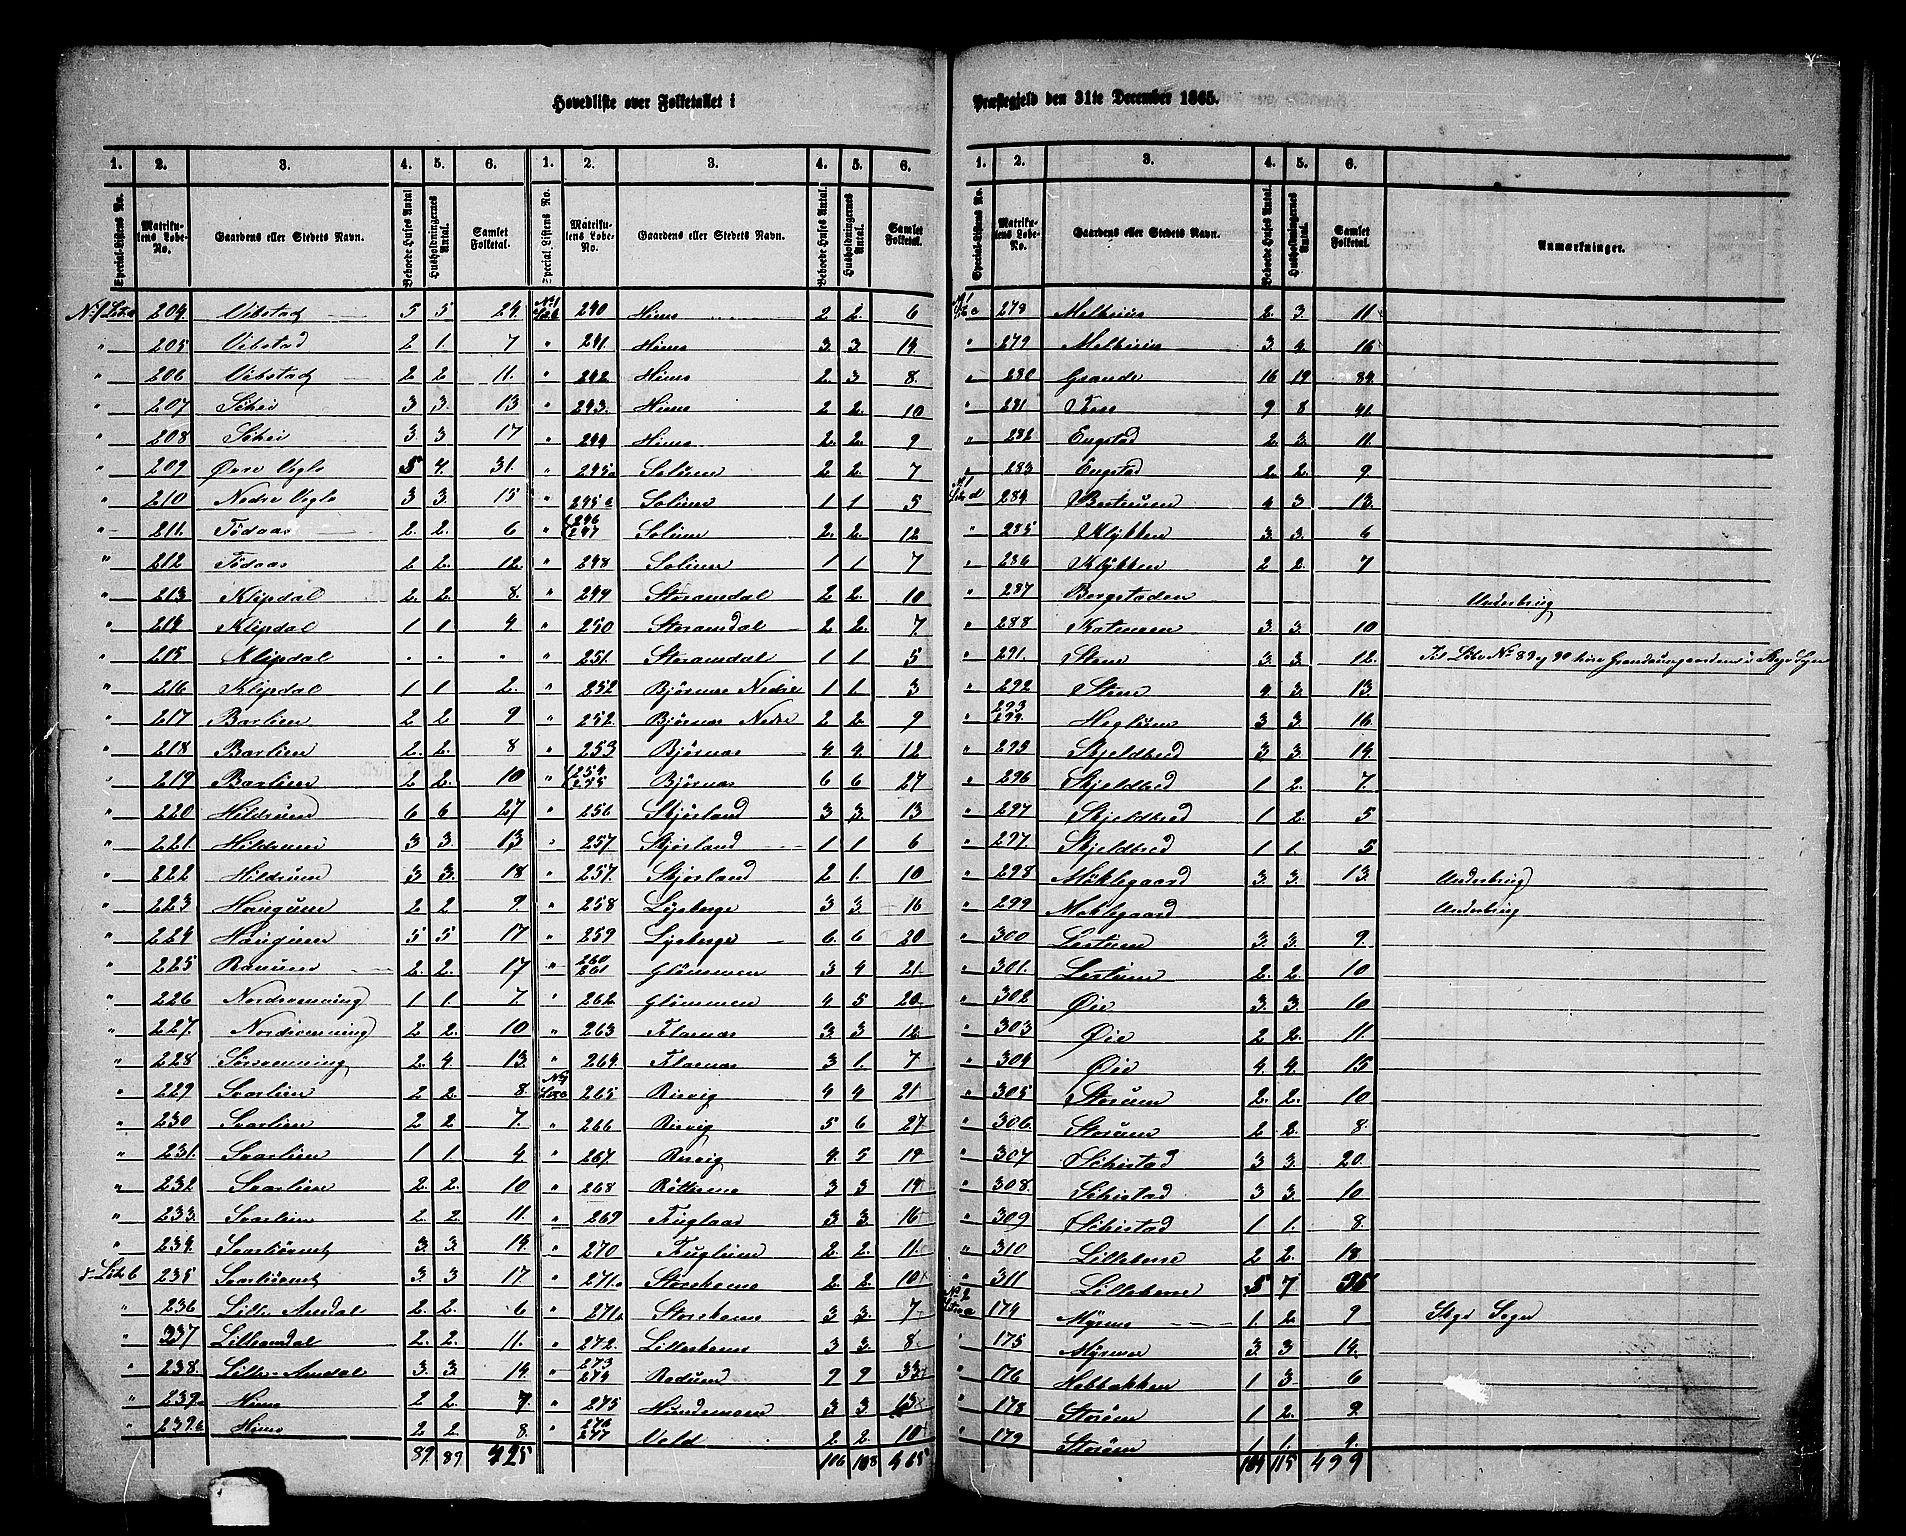 Hovedliste over Folketallet i Præstegjeld den 31te December 1865.
1. 2. 3. 4. 5. 6. 1. 2. 3. 4. 5. 6.
Special-Listens No. Matrikulens Løbe-No. Gaardens eller Stedets Navn. Beboede Huses Antal Husholdningernes Antal. Samlet Folketal. Special Listens No. Matrikulens Løbe-No. Gaardens eller Stedets Navn. Beboede Huses Antal. Husholdningernes Antal. Samlet Folketal.
No 1 Litr a 204 Vibstad 5 5 24. No 1 Litr b 240 Hims 2 2. 6
" 205 Vibstad 2 1. 7 " 241. Hims 3. 3. 14.
" 206 Vibstad 2 2 11. " 242 Hims 2. 3 8.
" 207 Schei 3 3. 13 " 243. Hims 2 2. 10
" 208 Schei 3. 3 17 " 244 Hims 2. 2. 9
" 209 Øvre Vegla 5 4. 31. " 245a Solum 2 2 7
" 210 Nedre Vegla 3 3. 15 " 245 Solum 1 1 5
" 211. Tødaas 2. 2. 6 " 246 247 Solum 2. 2. 12
" 212 Tødaas 2 2. 12. " 248 Solum 1 1 7
" 213 Klipdal 2. 2. 8. " 249 Storamdal 2 2. 10
" 214 Klipdal 1 1 4 " 250 Storamdal 2 2. 7.
" 215 Klipdal . . . " 251. Storamdal 1 1 5
" 216 Klipdal 1 1 2. " 252 Bjørnes Nedre 1 1. 3
" 217 Barlien 2 2. 9 " 252. Bjørnas Nedre 2 2. 9
" 218 Barlien 2. 2. 8 " 253 Bjørnas 4. 4. 12
" 219 Barlien 2 2. 10 " 254 255 Bjørnas 6 6 24
" 220 Hildrum 6 6 27 " 256 Skjørland 3 3. 13
" 221. Hildrum 3 3. 13 " 257 Skjørland 1 1 6
" 222 Hildrum 3 3. 18 " 257. Skjørland 2 1. 10
" 223 Haugum 2 2 9. " 258 Lysberge 3 3. 16
" 224 Haugum 5 5 17 " 259 Lysberge 6. 6 20
" 225 Ranum 2. 2. 17 " 260 261 Glømmen 3 4 21
" 226 Nordvenning 1 1. 7. " 262. Glømmen 4 5 20
" 227. Nordvenning 2 2. 10 " 263 Flaenas 3. 3 12
" 228 Sørvenning 2. 4. 13. " 264. Flaenas 3 1. 7
" 229 Svarlien 2 2. 8. No 1 Litr c 265 Risvig 4 4 21
" 230 Svarlien 2 2 7. " 266 Risvig 5 6 27
" 231. Svarlien 1 1 4 " 267. Risvig 4. 5 19
" 232 Svarlien 2. 2. 10 " 268 3 3 14
" 233. Svarlien 2. 2. 11. " 269 Fuglaas 3. 3. 16
" 234. 3. 3. 14. " 270 Fuglum 2 2. 11.
Litr b 235 3. 3 17. " 271a Storekomo 2 2. 10
" 236 Lille Amdal 2. 2. 6 " 271 Storekomo 3 3. 7
" 337 Lilleamdal 2. 2. 11. " 272. Lillekomo 3 3. 8
" 238. Lille-Amdal 3. 3. 14. " 273 274 Rodum 9 9 33
" 239a Hims 2 2. 7 " 275 3 3 13
" 239 Hims 2 2. 8 " 276 277 Vold 2 2. 10
89 89 425 106 108 465
1. 2. 3. 4. 5. 6.
Special-Listens No. Matrikulens Løbe-No. Gaardens eller Stedets Navn. Beboede Huses Antal. Husholdningernes Antal. Samlet Folketal. Anmærkninger.
No 1 Litr c 278 Melhuus 2. 3. 11
" 279 Melhuus 3. 4. 16
" 280 Grande 16 19 84.
" 281 9 8 41.
" 282 Engstad 2. 3. 11.
" 283 Engstad 2 2. 9
No 1 Litr d 284. 4 3 13.
" 285 Klykken 3. 3. 6
" 286 Klykken 2 2. 7
" 287 Bergstaden Underbrug
" 288 3. 3. 10
" 291. Steen 3. 3. 12.
" 292 Steen 4. 3. 13
" 293 294. Heglum 3 3. 16
" 295 Skjeldbred 3 3. 14.
" 296 Skjeldbred 1 2. 7.
" 297 Skjeldbred 1 2 5
" 297. Skjeldbred 1 1. 5
" 298 Møklegaard 3. 3. 13. Underbrug
" 299 Møklegaard Underbrug
" 300 Lertum 3. 3. 9.
" 301. Lertum 2. 2. 10
" 302 Øie 3. 3. 10
" 303 Øie 2 2. 11.
" 304 Øie 4. 4. 15
" 305 Storum 2. 2. 10
" 306. Storum 2 2. 8.
" 307 Schistad 3 3. 20.
" 308. Schistad 3 3. 10
" 309 Schistad 1 1. 8.
" 310 Lilleberre 2 2. 18
" 311 Lilleberre 5 7 35
No 2 Litr a 174 Myrmo 1 2. 9
" 175 Myrmo 3 3 14.
" 176 Hobbakken 1 3 6
" 178 Storøen 1 2. 9.
" 179 Storøen 1 1. 4.
104 115 499